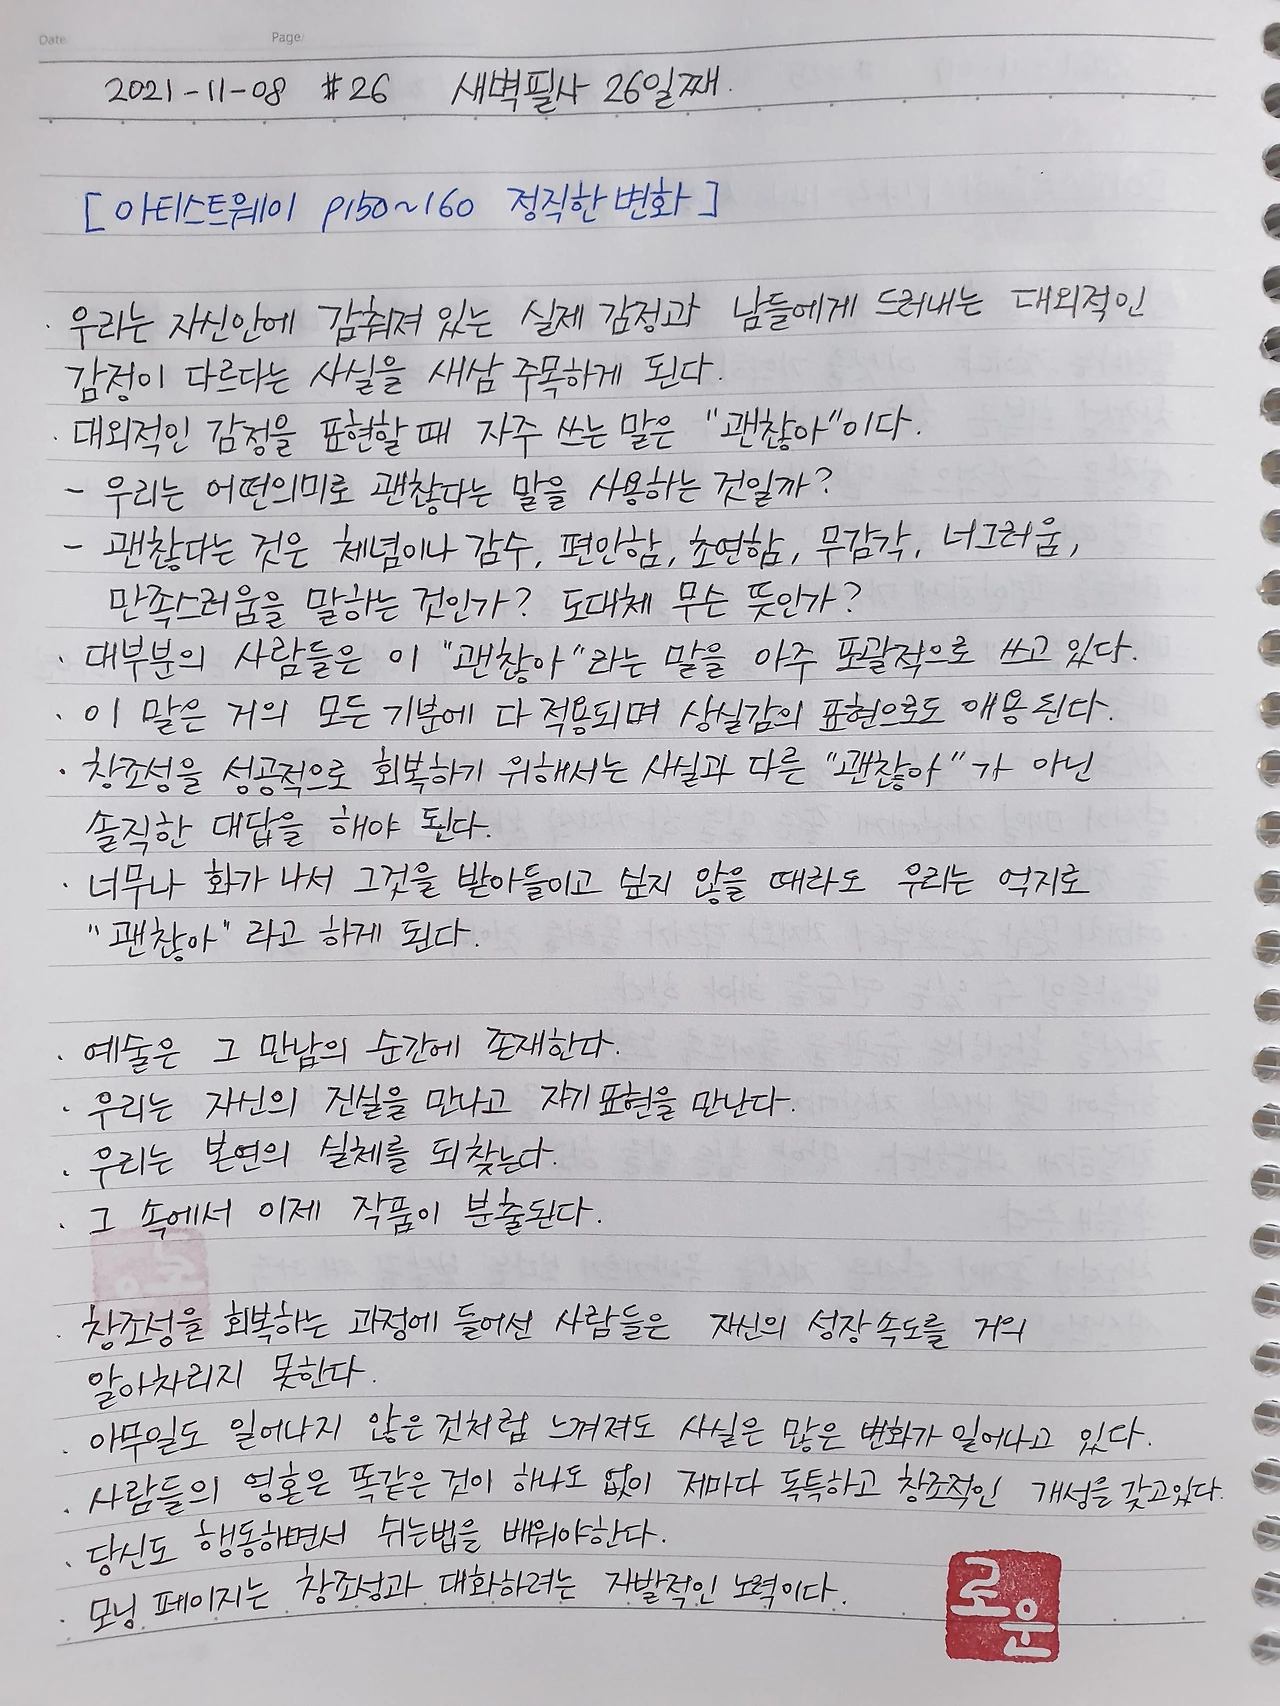 Date
Page
2021-11-08 #26 새벽필사 26일째.
[아티스트웨이 p150~160 정직한 변화]
· 우리는 자신안에 감춰져 있는 실제 감정과 남들에게 드러내는 대외적인
감정이 다르다는 사실을 새삼 주목하게 된다.
· 대외적인 감정을 표현할 때 자주 쓰는 말은 "괜찮아"이다.
- 우리는 어떤의미로 괜찮다는 말을 사용하는 것일까?
- 괜찮다는 것은 체념이나 감수, 편안함, 초연함, 무감각, 너그러움,
만족스러움을 말하는 것인가? 도대체 무슨 뜻인가?
· 대부분의 사람들은 이 "괜찮아"라는 말을 아주 포괄적으로 쓰고 있다.
· 이 말은 거의 모든 기분에 다 적용되며 상실감의 표현으로도 애용된다.
· 창조성을 성공적으로 회복하기 위해서는 사실과 다른 "괜찮아"가 아닌
솔직한 대답을 해야 된다.
· 너무나 화가 나서 그것을 받아들이고 싶지 않을 때라도 우리는 억지로
"괜찮아"라고 하게 된다.
· 예술은 그 만남의 순간에 존재한다.
· 우리는 자신의 진실을 만나고 자기 표현을 만난다.
· 우리는 본연의 실체를 되찾는다.
· 그 속에서 이제 작품이 분출된다.
· 창조성을 회복하는 과정에 들어선 사람들은 자신의 성장 속도를 거의
알아차리지 못한다.
· 아무일도 일어나지 않은 것처럼 느껴져도 사실은 많은 변화가 일어나고 있다.
· 사람들의 영혼은 똑같은 것이 하나도 없이 저마다 독특하고 창조적인 개성을 갖고있다.
· 당신도 행동하면서 쉬는법을 배워야한다.
· 모닝 페이지는 창조성과 대화하려는 자발적인 노력이다.
로운